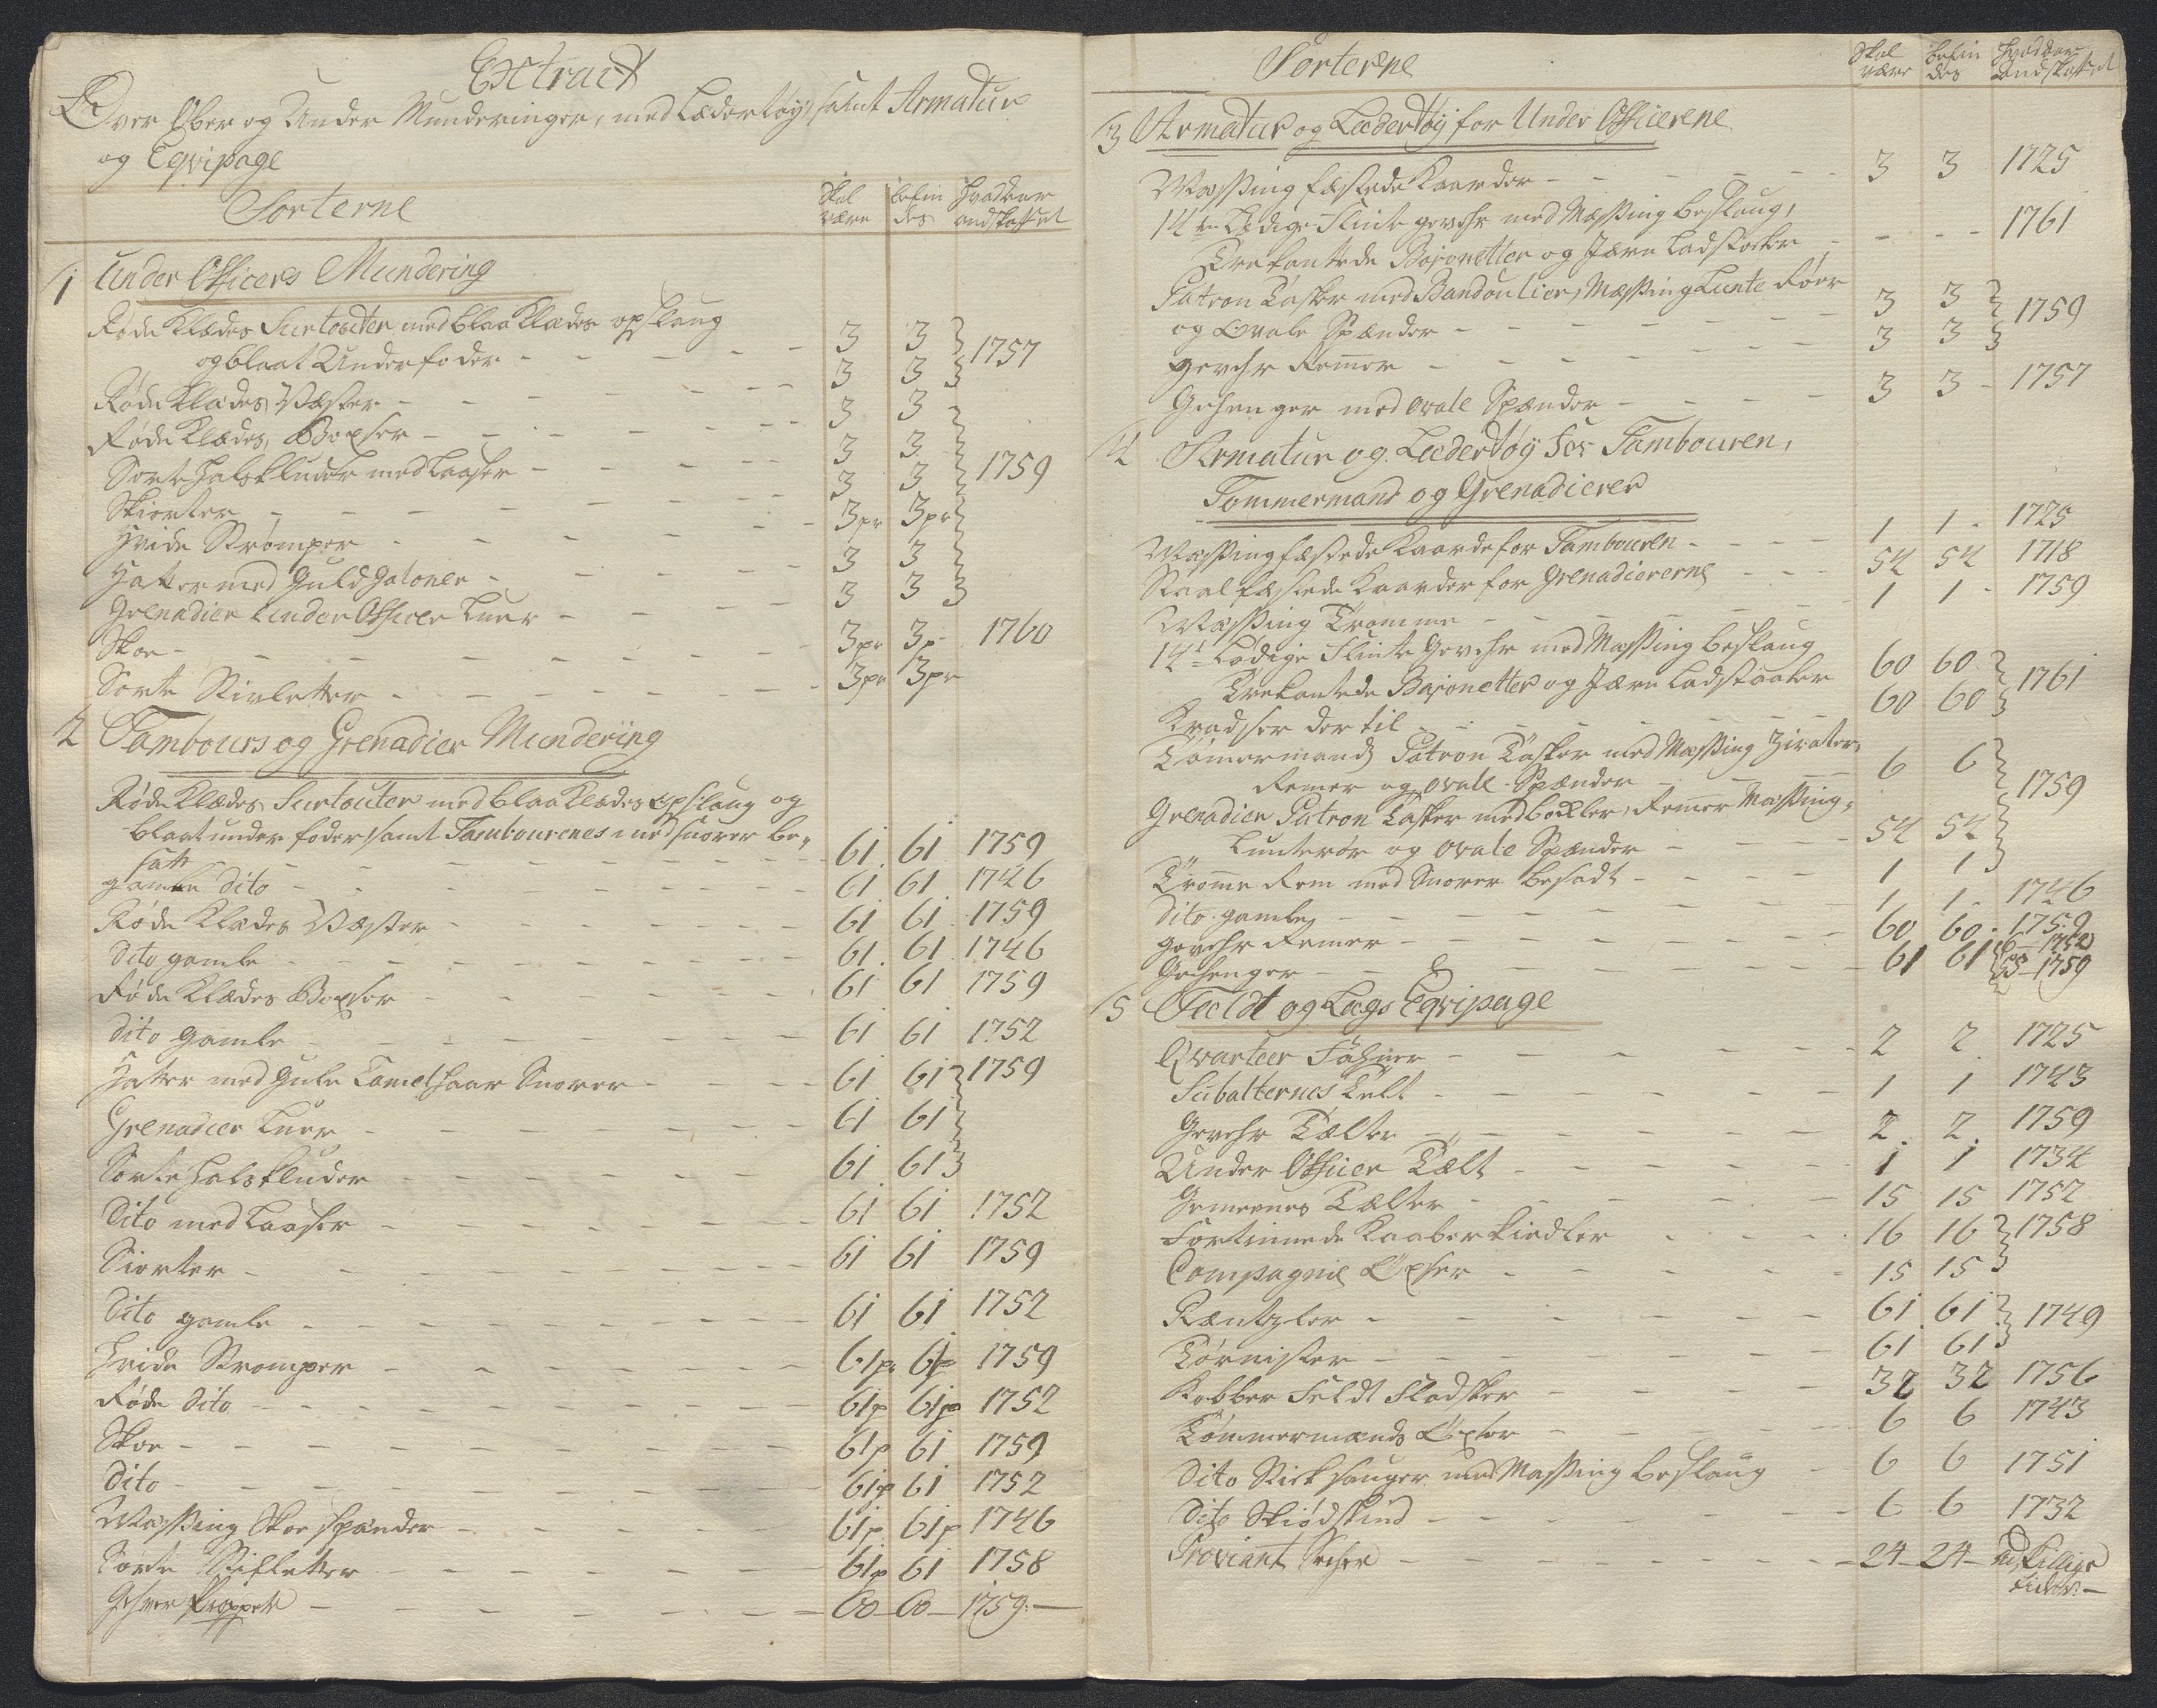 Extract
Over Ober og Under Munderinger, med Lædertøy, samt Armatur
og Eqvipage
Sorterne Skal være befindes Hvad Aar andskaffet
1 Under Officers Mundering
Røde Klædes Surtouter med blaa Klædes opslaug
og blaat Underfoder - - - 3 3 1757
Røde Klædes Væster - - - 3 3
Røde Klædes Boxser - - - 3 3
Sorte Halskluder med Laaser - - - 3 3 1759
Skiorter - - - 3 3
Hvide Strømper - - - 3 pr 3 pr
Hatter med Guld Galoner - - - 3 3
Grenadier Under Officer Luer - 3 3
Skoe - - - 3 pr 3 p 1760
Sorte Stivletter - - - 3 pr 3 pr
2 Tambours og Grenadier Mundering
Røde Klædes Surtouter med blaa Klædes opslaug og
blaat under foder samt Tambourenes med snorer be-
satt - - - 61 61 1759
gamle Dito - - - 61 61 1746
Røde Klædes Væster - - - 61 61 1759
Dito gamle - - - 61 61 1746
Røde Klædes Boxser - - - 61 61 1759
Dito gamle - - - 61 61 1752
Hatter med Gule Camelhaar Snorer - - - 61 61 1759
Grenadier Luer - - - 61 61
Sorte Halskluder - - - 61 61
Dito med Laaser - - - 61 61 1752
Skiorter - - - 61 61 1759
Dito gamle - - - 61 61 1752
Hvide Strømper - - - 61 pr 61 p 1759
Røde Dito - - - 61 p 61 p 1752
Skoe - - - 61 p 61 1759
Dito - - - 61 p 61 1752
Messing Skoe spænder - - - 61 p 61 p 1746
Sorte Stifletter - - - 61 p 61 1758
Gehver Propper - - - 60 60 1759
Sorterne Skal være befindes Hvad Aar andskaffet
3 Armatur og Lædertøy for Under Officerene
Messing fæstede Kaarder - - - 3 3 1725
14 Lødige Flinte gevehr med Messing beslaug,
Trekantede Bajonetter og Jærn Ladstocker - - - 1761
Patron Tasker med Bandoulier, Messing Lunte Röer
og Ovale Spænder - - - 3 3 1759
gevehr Remer - - - 3 3
Gehenger med ovale Spænder - - - 3 3 - 1757
4 Armatur og Lædertøy for Tambouren,
Tommermand og Grenadierer
Messing fæstede Kaarde for Tambouren - - - 1 1 - 1725
Staal fæstede Kaarder for Grenadiererne - - - 54 54 1718
Messing Tromme - - - 1 1 - 1759
14 Lødige Flinte Gevehr med Messing beslaug
Trekantede Bajonetter og Jærn Ladstaaker 60 60 1761
Kradser der til - - - 60 60
Tømermands Patron Tasker med Messing Zirater,
Remer og ovale Spænder - - - 6 6 1759
Grenadier Patron Tasker med bockler, Remer Messing,
Lunterør og ovale Spænder - - - 54 54
Tromme Rem med Snorer besadt - - - 1 1
Dito gamle - - - 1 1 - 1746
gevehr Remer - - - 60 60 - 1759
Gehenger - - - 61 61 6 - 1752
55 - 1759
5 Feldt og Lags Eqvipage
Qvarteer Fahner - - - 2 2 1725
Subalternes Telt - - - 1 1 1743
Gevehr Tælter - - - 2 2 1759
Under Officer Tælt - - - 1 1 1734
Gemeenes Tælter - - - 15 15 1752
Fortinnede Kaaberkiedler - - - 16 16 1758
Compagnie Øxser - - - 15 15
Rentzler - - - 61 61 1749
Tornister - - - 61 61
Kobber Feldt Fladsker - - - 32 32 1756
Tömmermands Öxer - - - 6 6 1743
Dito Stiksauger med Messing beslaug - 6 6 1751
Dito Skiødskind - - - 6 6 1732
Proviant Secher - - - 24 - 24 - adskillige
Tider -